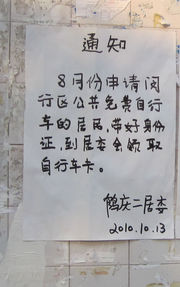 通知
8月份申请闵
行区公共免费自行
车的居民,带好身份
证,到居委会领取
自行车卡。
鹤庆二居委
2010.10.13